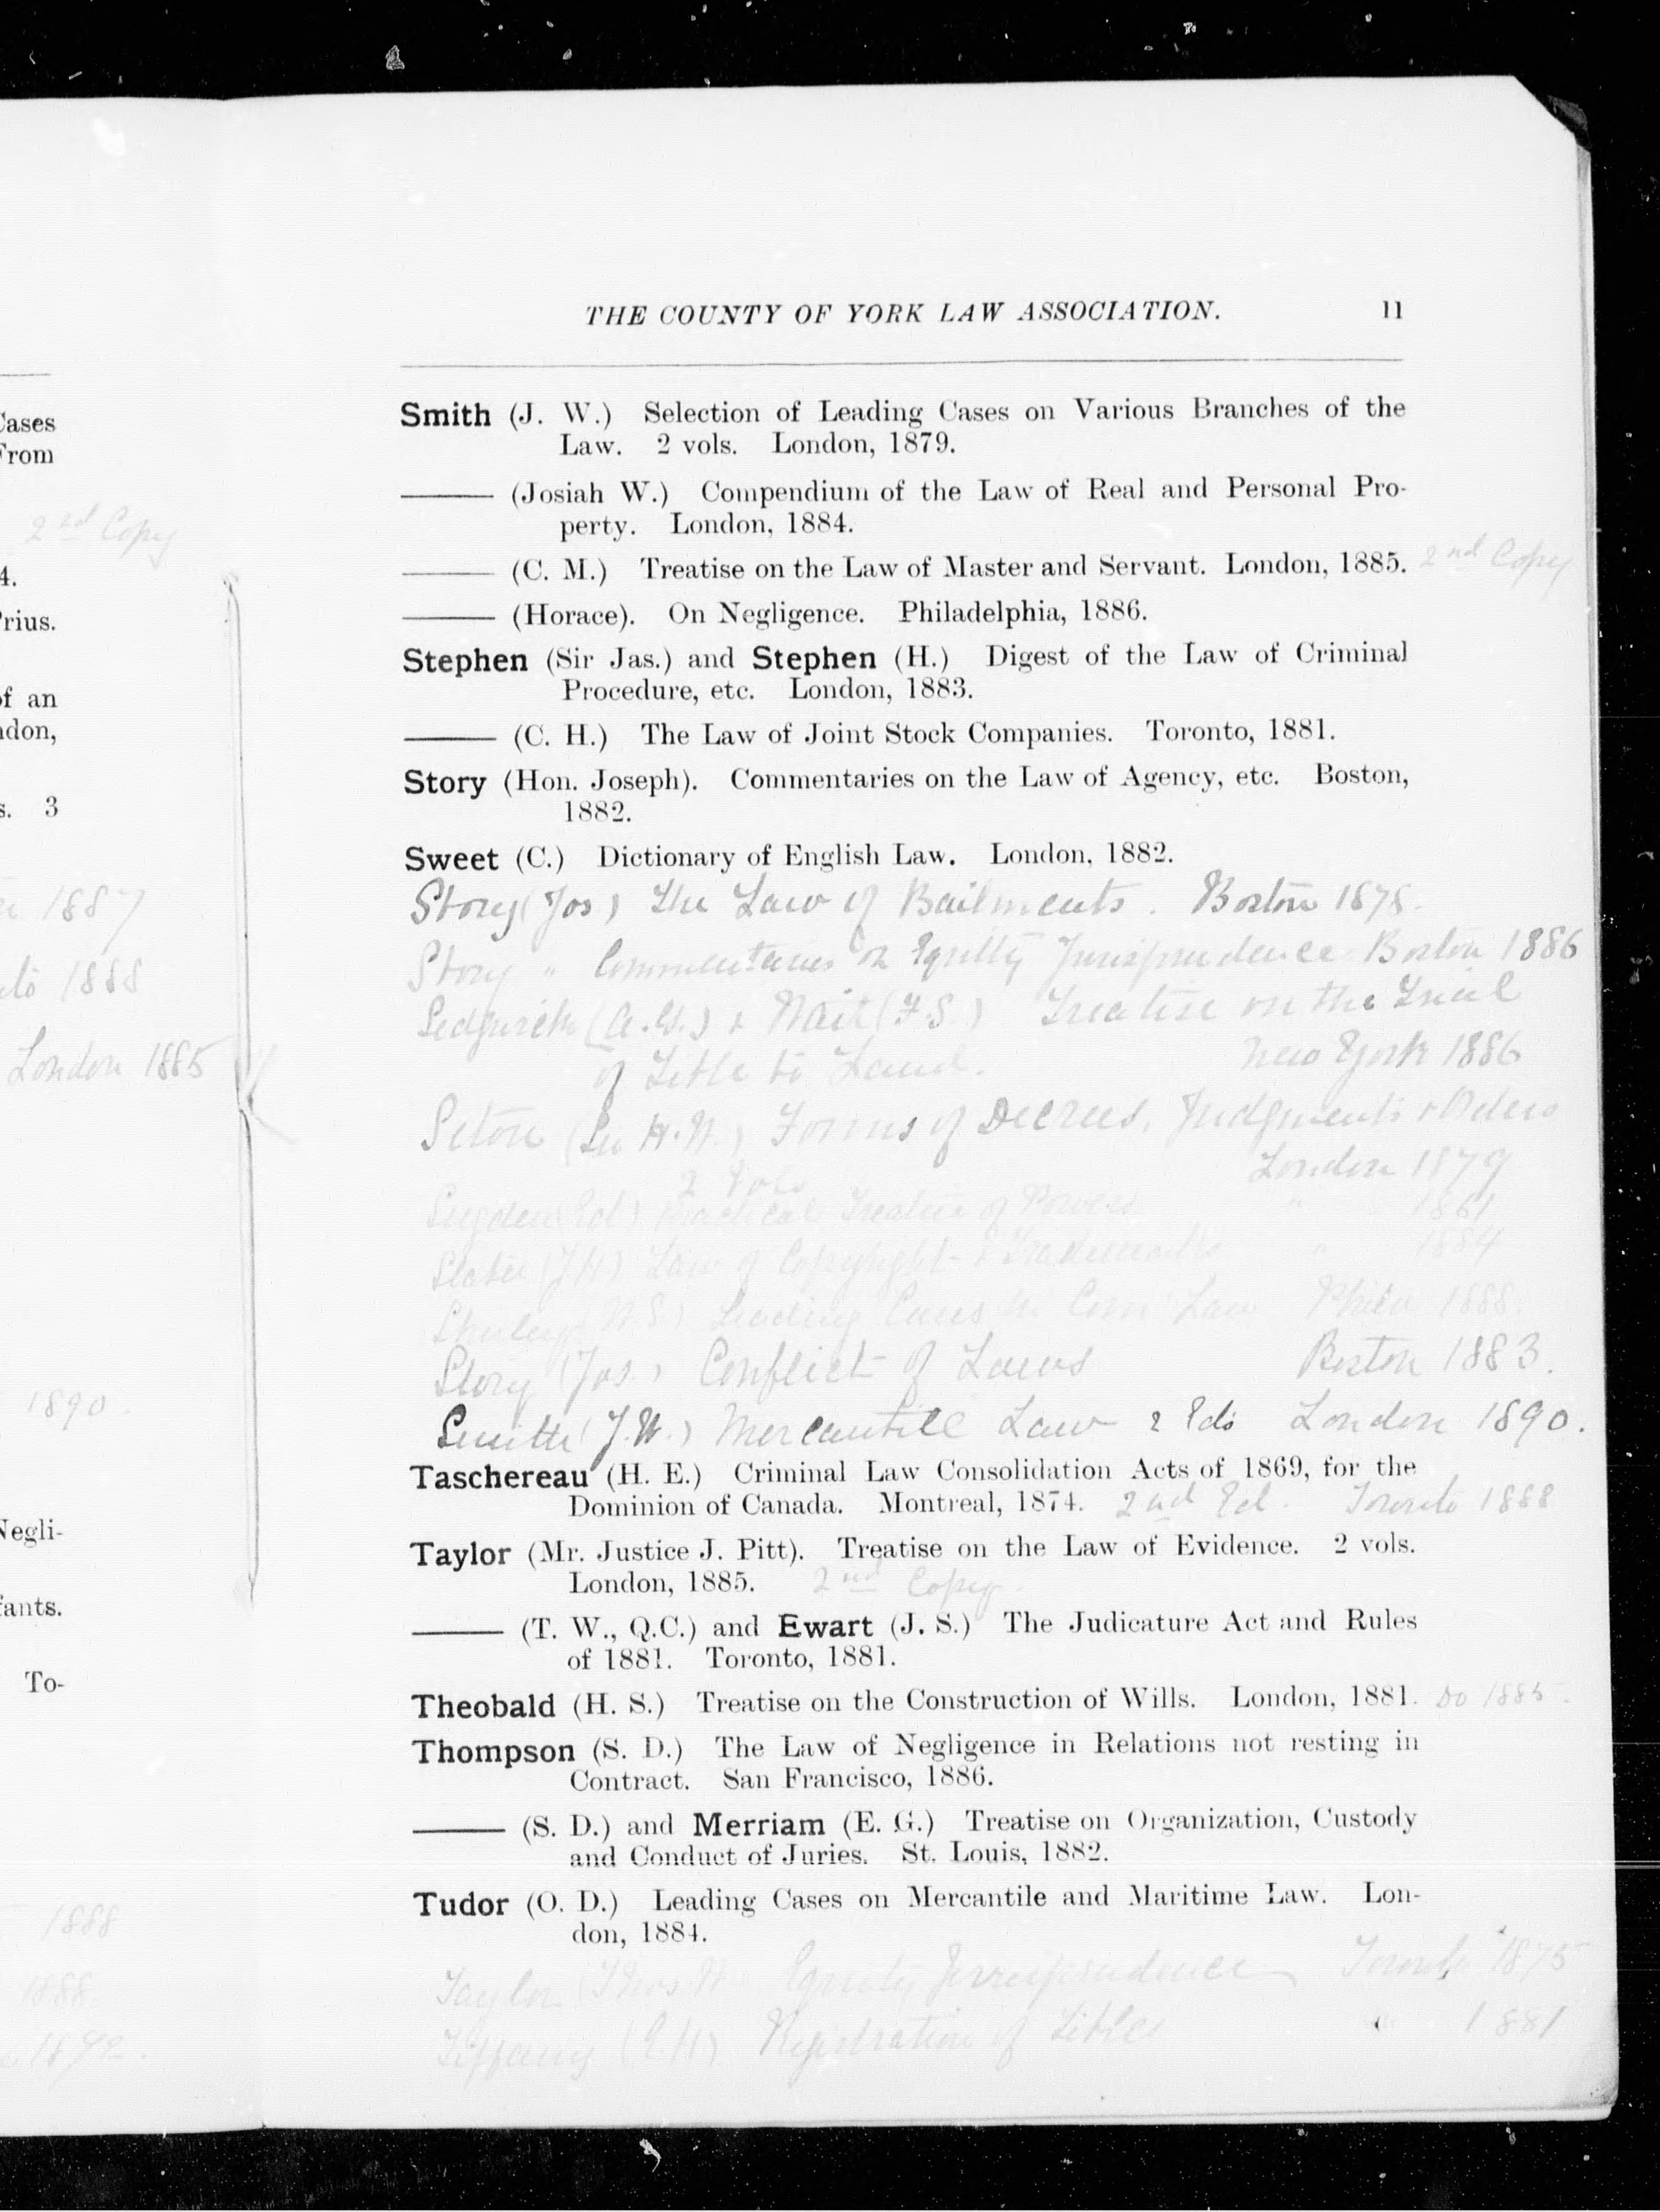 Cases
From
2nd Copy
4.
Prius.
of an
ndon,
s. 3
1887
1888
London 1885
1890.
Negli-
fants.
To-
1888
1888
1892.
THE COUNTY OF YORK LAW ASSOCIATION. 11
Smith (J. W.) Selection of Leading Cases on Various Branches of the
Law. 2 vols. London, 1879.
——— (Josiah W.) Compendium of the Law of Real and Personal Pro-
perty. London, 1884.
——— (C. M.) Treatise on the Law of Master and Servant. London, 1885. 2nd Copy
——— (Horace). On Negligence. Philadelphia, 1886.
Stephen (Sir Jas.) and Stephen (H.) Digest of the Law of Criminal
Procedure, etc. London, 1883.
——— (C. H.) The Law of Joint Stock Companies. Toronto, 1881.
Story (Hon. Joseph). Commentaries on the Law of Agency, etc. Boston,
1882.
Sweet (C.) Dictionary of English Law. London, 1882.
Story (Jos) The Law of Bailments. Boston 1878.
Story " Commentaries on Equity Jurisprudence Boston 1886
Sedgwick (A.G.) & Wait (F.S.) Treatise on the Trial
of Title to Land. New York 1886
Seton (Sir H.W.) Forms of Decrees, Judgments & Orders
2 Vols London 1879
Sugden (Ed) Practical Treatise of Powers " 1861
Slater (J H) Law of Copyright & Trademarks " 1884
Shirley (W.S.) Leading Cases in Com Law Phila 1888.
Story (Jos.) Conflict of Laws Boston 1883.
Smith (J.W.) Mercantile Law 2 Eds London 1890.
Taschereau (H. E.) Criminal Law Consolidation Acts of 1869, for the
Dominion of Canada. Montreal, 1874. 2nd Ed. Toronto 1888
Taylor (Mr. Justice J. Pitt). Treatise on the Law of Evidence. 2 vols.
London, 1885. 2nd Copy
——— (T. W., Q.C.) and Ewart (J. S.) The Judicature Act and Rules
of 1881. Toronto, 1881.
Theobald (H. S.) Treatise on the Construction of Wills. London, 1881. Do 1885.
Thompson (S. D.) The Law of Negligence in Relations not resting in
Contract. San Francisco, 1886.
——— (S. D.) and Merriam (E. G.) Treatise on Organization, Custody
and Conduct of Juries. St. Louis, 1882.
Tudor (O. D.) Leading Cases on Mercantile and Maritime Law. Lon-
don, 1884.
Taylor (Thos W Equity Jurisprudence Toronto 1875
Tiffany (E.H) Registration of Titles " 1881